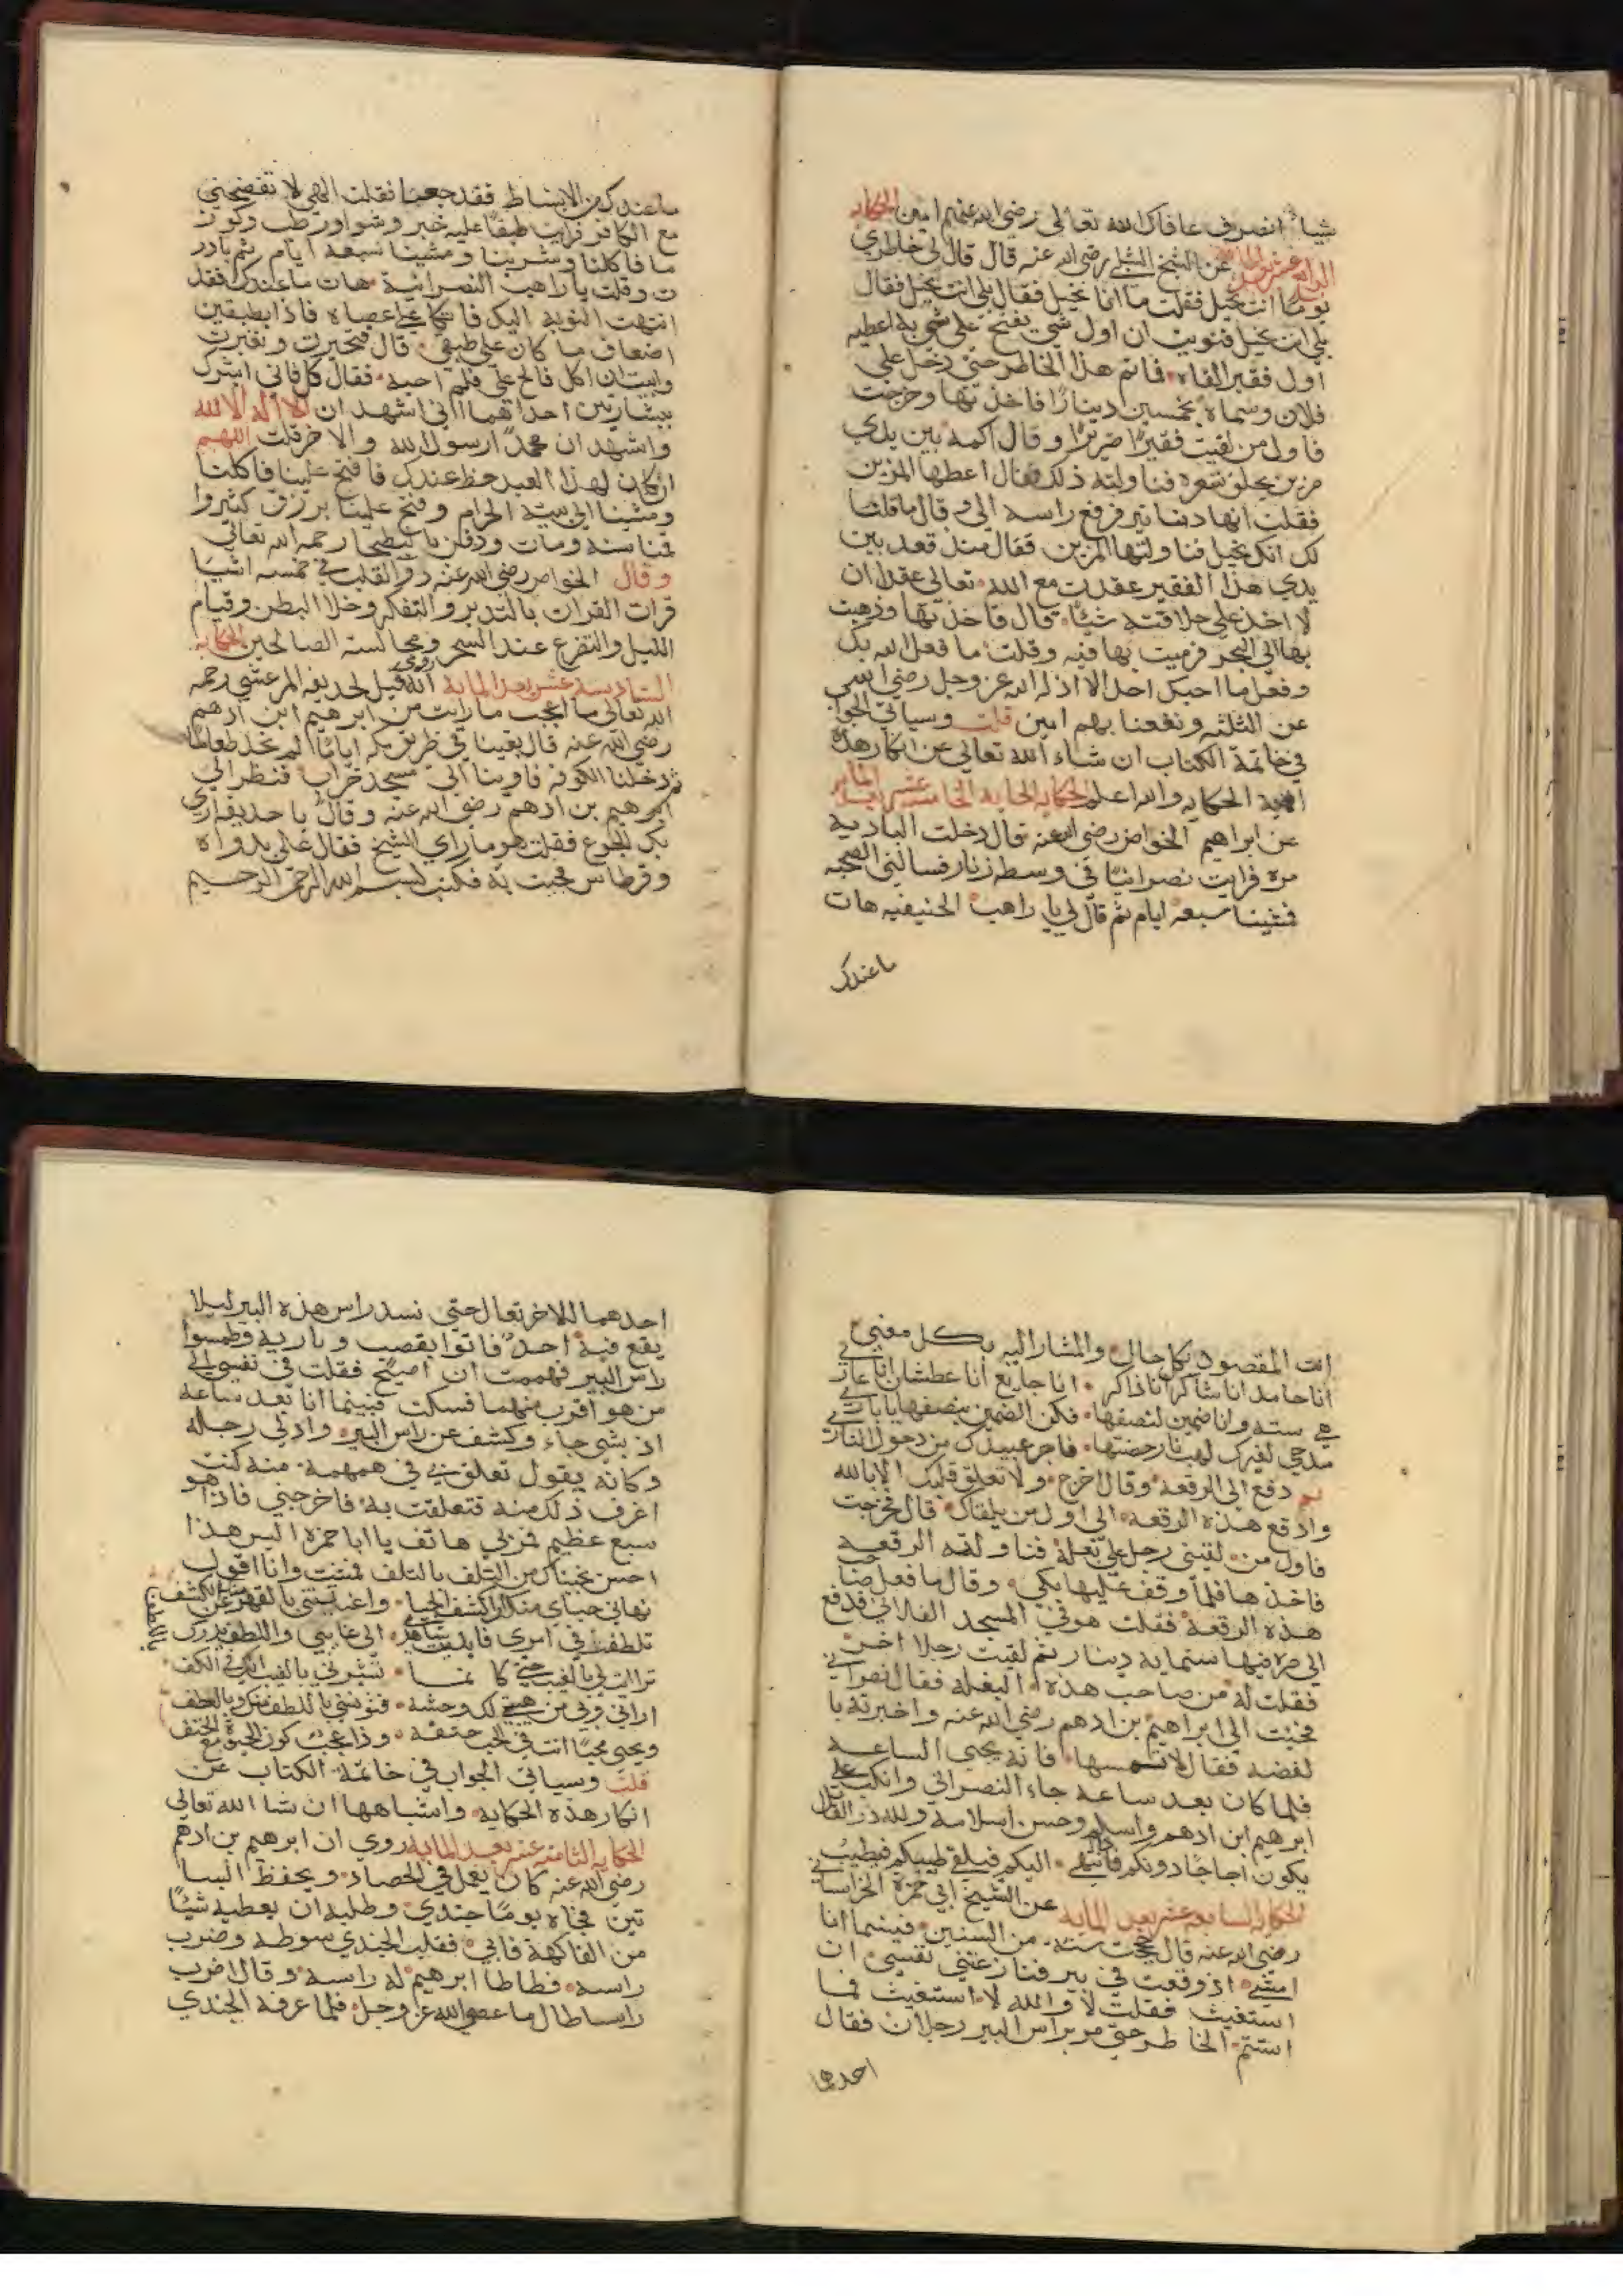 شيا انصرف عافاك الله تعالى رضي الله عنهم امين الحكايه
الرابعة عشر بعد الماية عن الشيخ الشبلي رضي الله عنه قال قال لي خاطري
يوما انت بخيل فقلت ما انا بخيل فقال بلي انت بخيل فقال
بلي انت بخيل فنويت ان اول شي يفتح علي به اعطيه
اول فقير القاه فما تم هذا الخاطر حتى دخل علي
فلان وسماه بخمسين دينارا فاخذتها وخرجت
فاول من لقيت فقيرا ضريرا وقال اكمه بين يدي
مزين يحلق شعره فناولته ذلك فقال اعطها المزين
فقلت انها دنانير فرفع راسه الي وقال ما قلنا
لك انك بخيل فناولتها المزين فقال منذ قعد بين
يدي هذا الفقير عقدت مع الله تعالى عقدا ان
لا اخذ علي حلاقته شيا قال فاخذتها وذهبت
بها الي البحر فرميت بها فيه وقلت ما فعل الله بك
وفعل ما احبك احد الا اذله الله عز وجل رضي الله
عن الثلثه ونفعنا بهم امين قلت وسياتي الجواب
في خاتمة الكتاب ان شاء الله تعالى عن انكار هذه
الحكايه والله اعلم الحكايه الخامسة عشر بعد الماية
عن ابراهيم الخواص رضي الله عنه قال دخلت البادية
مره فرايت نصرانيا في وسطه زنار فسالني الصحبه
فمشينا سبعة ايام ثم قال لي يا راهب الحنيفيه هات
ما عندك
ما عندك من الانبساط فقد جعنا فقلت الهي لا تفضحني
مع الكافر فرايت طبقا عليه خبز وشوا ورطب وكوز
ما فاكلنا وشربنا ومشينا سبعة ايام ثم بادر
ت وقلت يا راهب النصرانية هات ما عندك فقد
انتهت النوبة اليك فاتكا على عصاه فاذا بطبقين
اضعاف ما كان على طبقي قال فتحيرت وتغيرت
وابيت ان اكل فالح علي فلم اجبه فقال كل فاني ابشرك
ببشارتين احداهما اني اشهد ان لا اله الا الله
واشهد ان محمدا رسول الله والاخرى قلت اللهم
ان كان لهذا العبد حظ عندك فافتح علينا فاكلنا
ومشينا الي بيت الحرام وفتح علينا برزق كثير وا
قمنا سنة ومات ودفن بالبطحا رحمه الله تعالى
وقال الخواص رضي الله عنه دوا القلب في خمسه اشيا
قرات القران بالتدبر والتفكر وخلا البطن وقيام
الليل والتضرع عند السحر ومجالسة الصالحين الحكايه
السادسة عشر بعد الماية روي انه قيل لحذيفه المرعشي رحمه
الله تعالى ما اعجب ما رايت من ابرهيم ابن ادهم
رضي الله عنه قال بقينا في طريق مكه اياما لم نجد طعاما
ثم دخلنا الكوفه فاوينا الي مسجد خراب فنظر الي
ابرهيم بن ادهم رضي الله عنه وقال يا حذيفه اري
بك الجوع فقلت هو ما راي الشيخ فقال علي بدواة
وقرطاس فجيت به فكتب بسم الله الرحمن الرحيم
انت المقصود بكل حال والمشار اليه بكل معني
انا حامد انا شاكر انا ذاكر انا جايع انا عطشان انا عاري
هي ستة وانا ضمين لنصفها فكن الضمين بنصفها يا باري
مدحي لغيرك لهب نار خضتها فاجر عبيدك من دخول النار
ثم دفع الي الرقعة وقال اخرج ولا تعلق قلبك الا بالله
وادفع هذه الرقعة الي اول من يلقاك قال فخرجت
فاول من لقيني رجل علي بغلة فناولته الرقعه
فاخذها فلما وقف عليها بكي وقال ما فعل صاحب
هذه الرقعة فقلت هو في المسجد الفلاني فدفع
الي صرة فيها ستماية دينار ثم لقيت رجلا اخر
فقلت له من صاحب هذه البغله فقال نصراني
فجيت الي ابراهيم بن ادهم رضي الله عنه واخبرته با
لقضه فقال لا تمسها فانه يجي الساعه
فلما كان بعد ساعة جاء النصراني وانكب على
ابرهيم ابن ادهم واسلم وحسن اسلامه ولله در القايل
يكون اجاجا دونكم فاذا انتهي اليكم فيلقي طيبكم فيطيب
الحكايه السابعة عشر بعد الماية عن الشيخ ابي حمزة الخراساني
رضي الله عنه قال حججت سنة من السنين فبينما انا
امشي اذ وقعت في بير فنازعتني نفسي ان
استغيث فقلت لا والله لا استغيث فما
استتم الخاطر حتى مر براس البير رجلان فقال
احدهما
احدهما للاخر تعال حتى نسد راس هذه البير ليلا
يقع فيه احد فاتوا بقصب وبارية وطمسوا
راس البير فهممت ان اصيح فقلت في نفسي الي
من هو اقرب منهما فسكت فبينما انا بعد ساعه
اذ بشي جاء وكشف عن راس البير وادلي رجله
وكانه يقول تعلق بي في همهمة منه كنت
اعرف ذلك منه فتعلقت به فاخرجني فاذا هو
سبع عظيم فمر بي هاتف يا ابا حمزة اليس هذا
احسن نجيناك من التلف بالتلف فمشيت وانا اقول
نهاني حياي منك ان اكشف الحيا واغنيتني بالقهر منك عن الكشف
تلطفت في امري فابديت شاهدي الي غايبي واللطف يدرك
باللطف
ترايت لي بالغيب حتى كانما تبشرني بالغيب انك في الكف
اراني وبي من هيبتي لك وحشة فتونسني باللطف منك وبالعطف
وتحيي محبا انت في الحب حتفه وذا عجب كون الحيوة مع الحتف
قلت وسياتي الجواب في خاتمة الكتاب عن
انكار هذه الحكاية واشباهها ان شا الله تعالى
الحكايه الثامنة عشر بعد الماية روي ان ابرهيم بن ادهم
رضي الله عنه كان يعمل في الحصاد ويحفظ البسا
تين فجاه يوما جندي وطلب ان يعطيه شيا
من الفاكهة فابي فقلب الجندي سوطه وضرب
راسه فطاطا ابرهيم له راسه وقال اضرب
راسا طال ما عصي الله عز وجل فلما عرفه الجندي